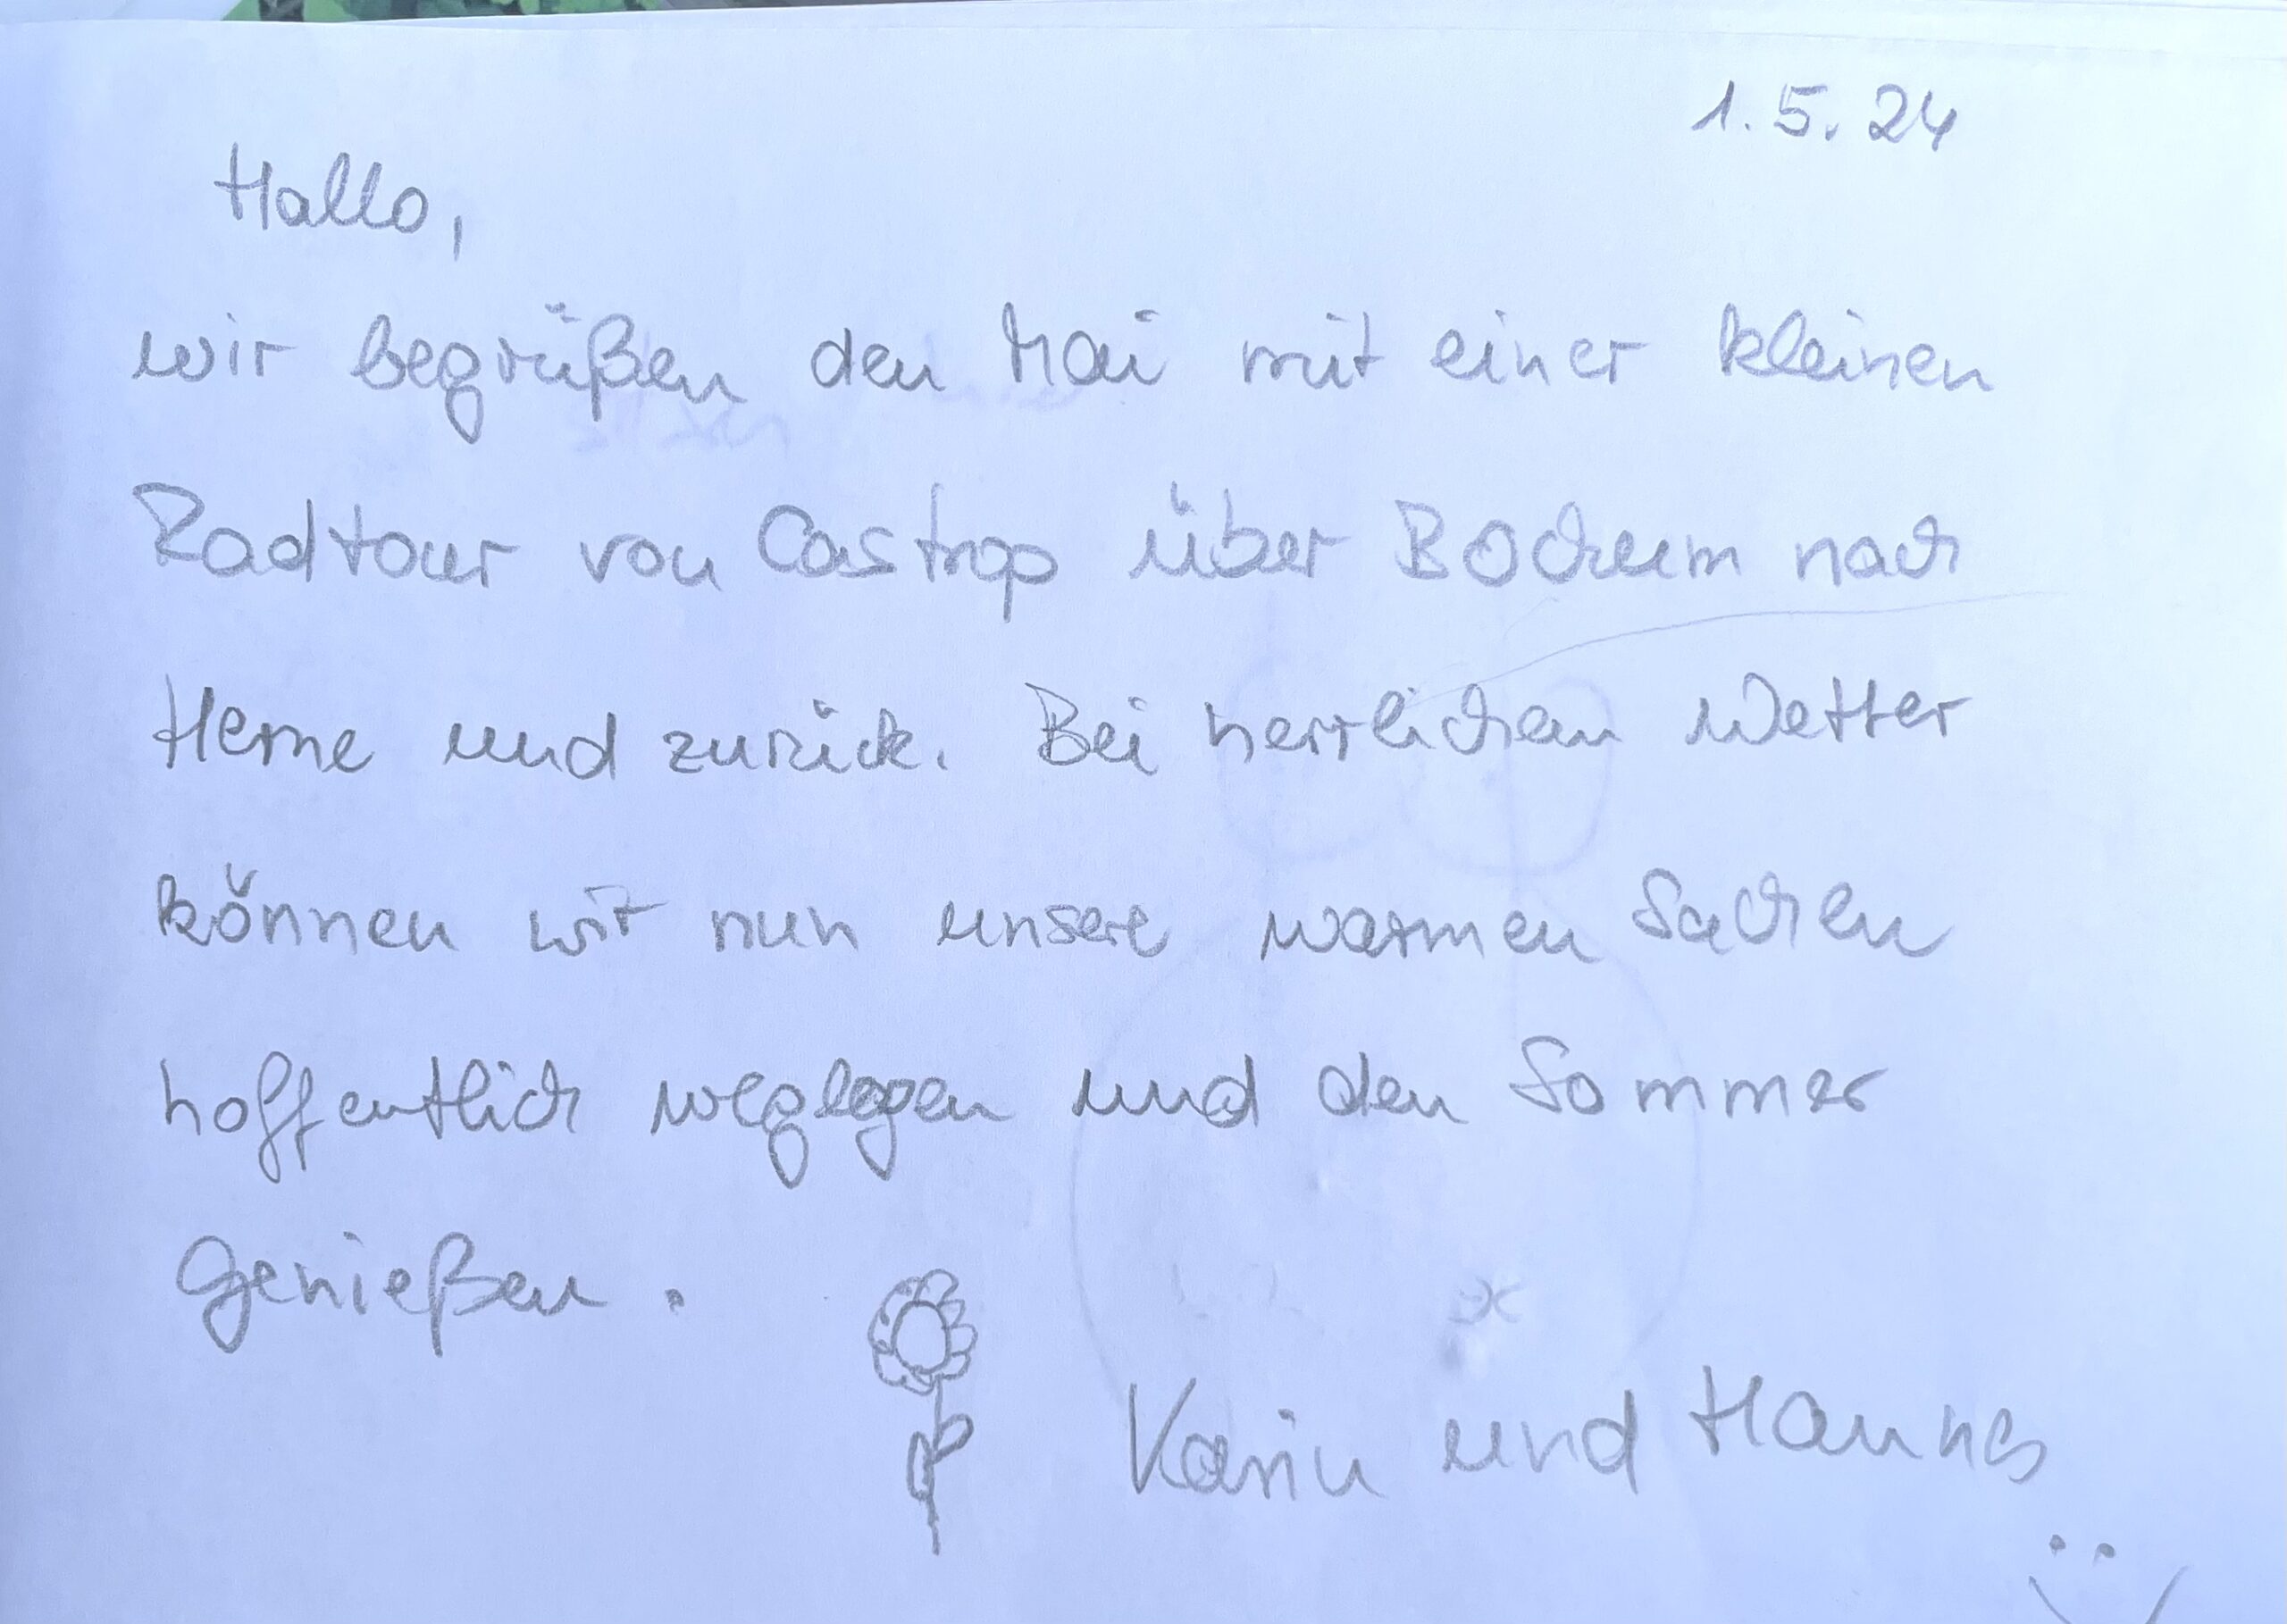 1.5.24
Hallo,
wir begrüßen den Mai mit einer kleinen
Radtour von Castrop über Bochum nach
Herne und zurück. Bei herrlichem Wetter
können wir nun unsere warmen Sachen
hoffentlich weglegen und den Sommer
genießen.
Karin und Hannes